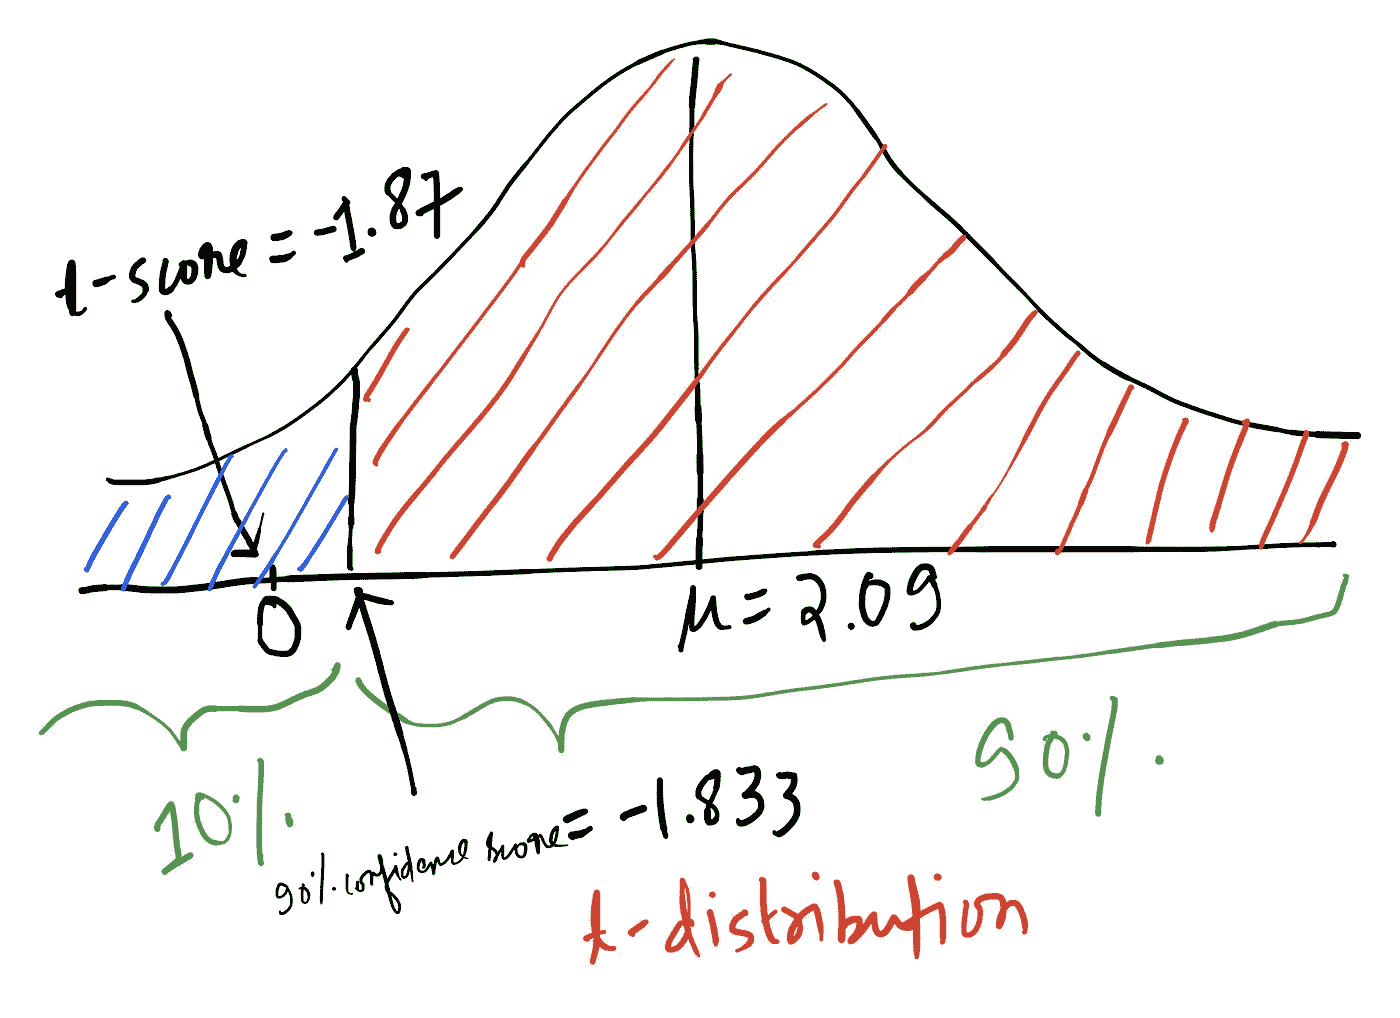 t-score = -1.87
0
μ = 2.09
10%
90%
90% confidence score = -1.833
t-distribution